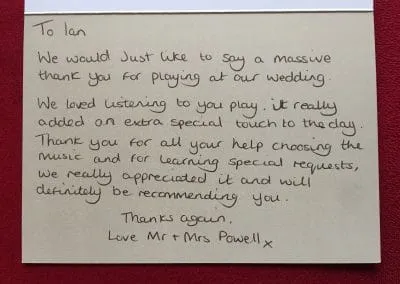 To Ian
We would Just like to say a massive
thank you for playing at our wedding.
We loved listening to you play. it really
added an extra special touch to the day.
Thank you for all your help choosing the
music and for learning special requests,
we really appreciated it and will
definitely be recommending you.
Thanks again.
Love Mr + Mrs Powell x